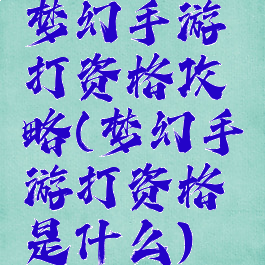 梦幻手游
打资格攻
略(梦幻手
游打资格
是什么)